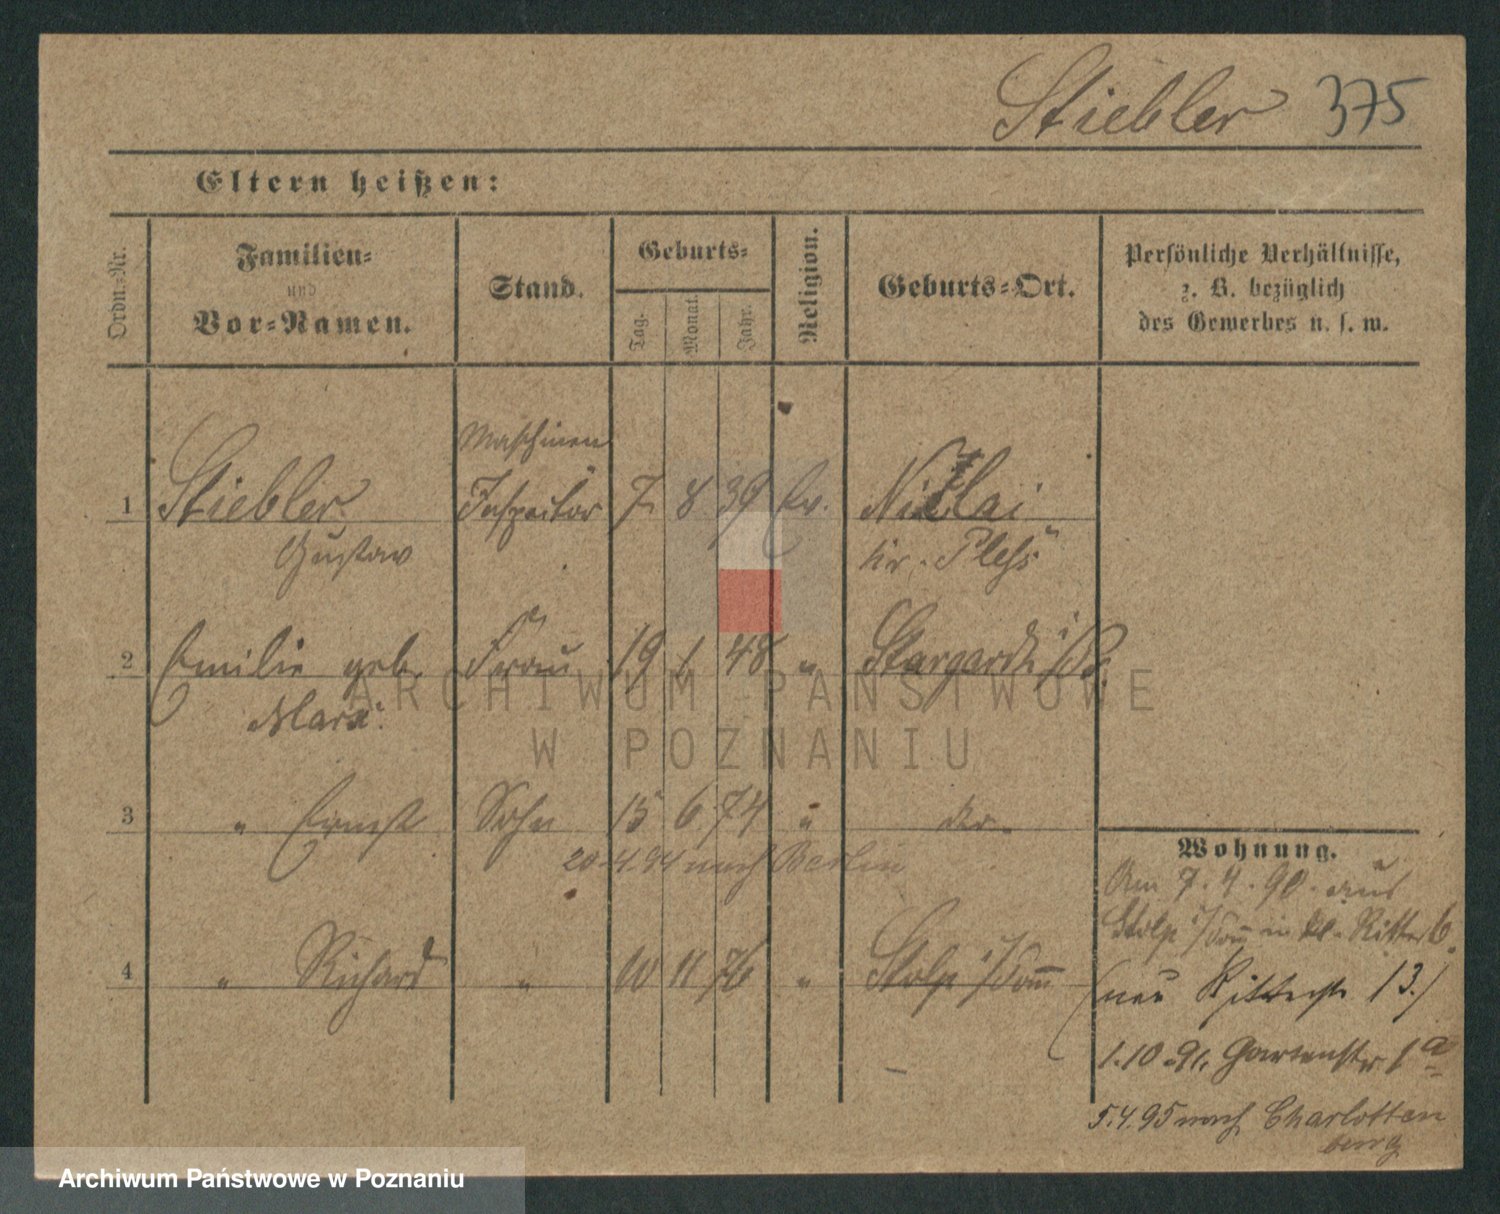 Stiebler 375
Eltern heißen:
Ordn.-Nr.
Familien-
und
Vor-Namen.
Stand.
Geburts-
Tag. Monat. Jahr.
Religion.
Geburts-Ort.
Persönliche Verhältnisse,
z. B. bezüglich
des Gewerbes u. s. w.
Maschinen
1 Stiebler Inspector 7 8 39 Ev. Nikolai
Gustav Kr. Pleß
2 Emilie geb. Frau 19 1 48 " Stargard i/P.
Marx
3 " Ernst Sohn 15 6 74 " do.
20.4.94 nach Berlin
4 " Richard " 10 11 76 " Stolp i/Pom
Wohnung.
Am 7.4.90. aus
Stolp i/Pom in kl. Ritter 6.
(neu Ritterstr 13.)
1.10.91. Gartenstr 1a
5.4.95 nach Charlotten
berg
ARCHIWUM PAŃSTWOWE
W POZNANIU
Archiwum Państwowe w Poznaniu